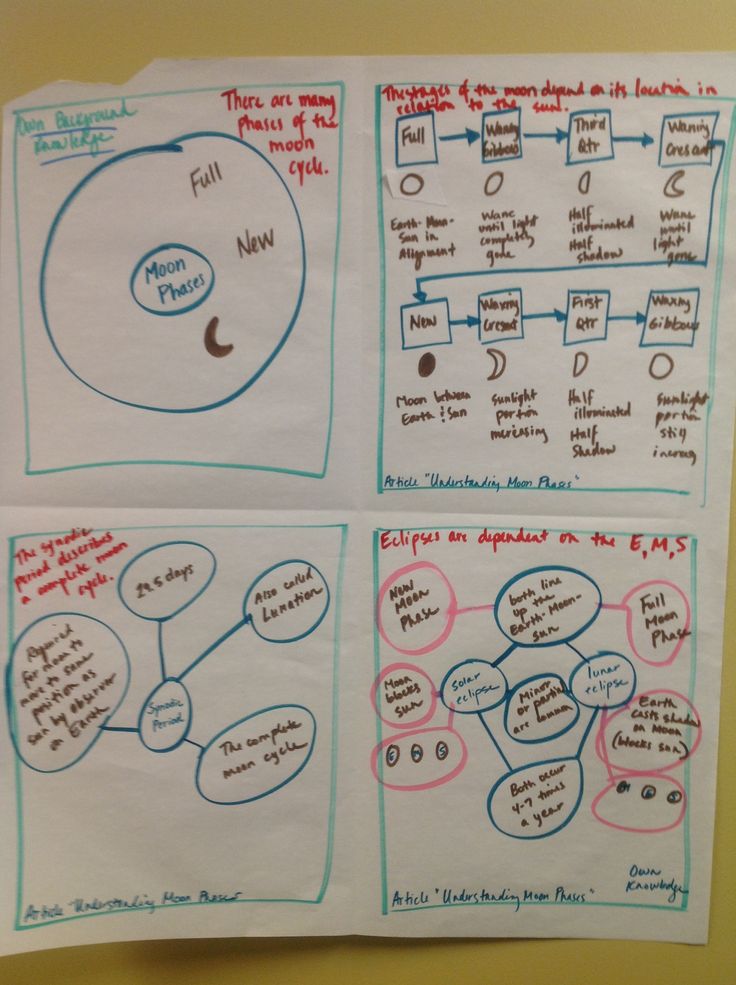 Own Background
Knowledge
There are many
phases of the
moon
cycle.
Full
New
Moon
Phases
The stages of the moon depend on its location in
relation to the sun.
Full
Waning
Gibbous
Third
Qtr
Waning
Crescent
Earth-Moon-
Sun in
Alignment
Wane
until light
completely
gone
Half
illuminated
Half
shadow
Wane
until
light
gone
New
Waxing
Crescent
First
Qtr
Waxing
Gibbous
Moon between
Earth & Sun
Sunlight
portion
increasing
Half
illuminated
Half
Shadow
Sunlight
portion
still
Article "Understanding Moon Phases"
The synodic
period describes
a complete moon
cycle.
29.5 days
Also called
Lunation
Required
for moon to
move to same
position as
sun by observer
on Earth
Synodic
Period
The complete
moon cycle
Article "Understanding Moon Phases
Eclipses are dependent on the E, M, S
New
Moon
Phase
both line
up the
Earth-Moon-
Sun
Full
Moon
Phase
Moon
blocks
sun
solar
eclipse
Minor
or partial
are common
lunar
eclipse
Earth
casts shadow
on Moon
(blocks sun)
E M S
M E S
Both occur
4-7 times
a year
Own
Knowledge
Article "Understanding Moon Phases"